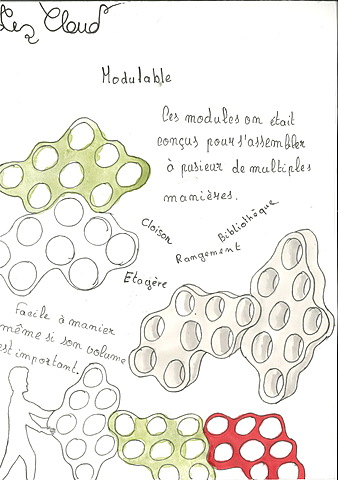 Les Cloud
Modulable
Ces modules on était
conçus pour s'assembler
à pusieur de multiples
manières.
Cloison
Bibliothèque
Rangement
Etagère
Facile à manier
même si son volume
est important.